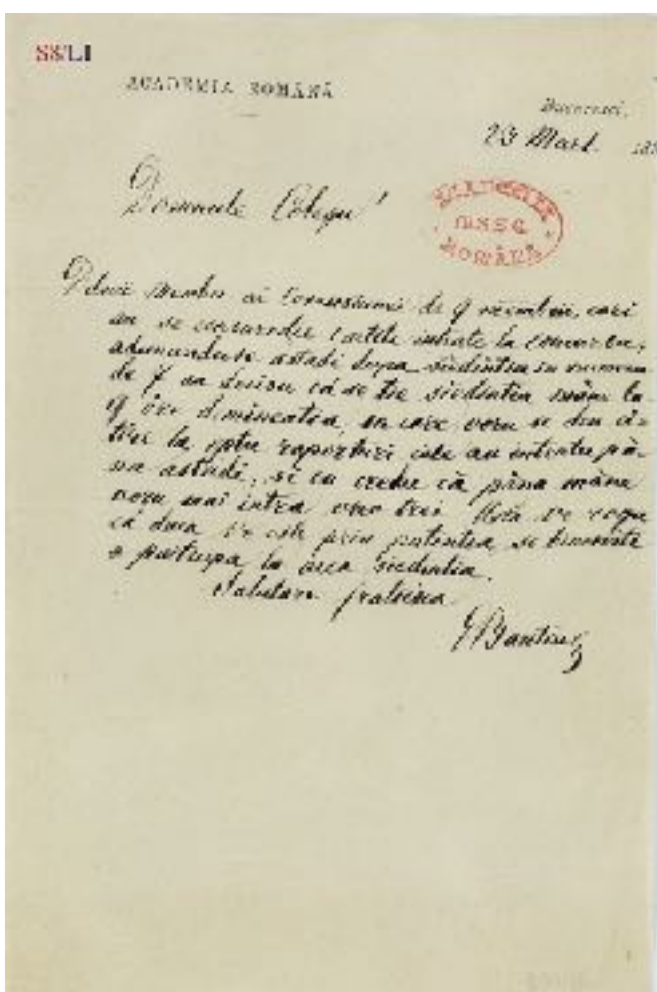 S8/LI
ACADEMIA ROMÂNĂ
Bucuresci,
23 Mart. 18
Domnule Colegu!
ACADEMIEI
MSSE
ROMÂNĂ
membri ai Comissiunei de 9 membri, cari
au se cartile intrate la concursu,
adunanduse astadi dupa siedintia in numeru
de 7 au decisu că se tie siedintia mâne la
9 óre dimineatia, in care voru se dea ci-
tire la optu raporturi cele au intratu pâ-
na astadi, si eu credu că pâna mâne
voru mai intra vreo trei ve rogu
că daca ve este prin putintia, se binevoiti
a participa la acea siedintia.
Salutare fratiésca